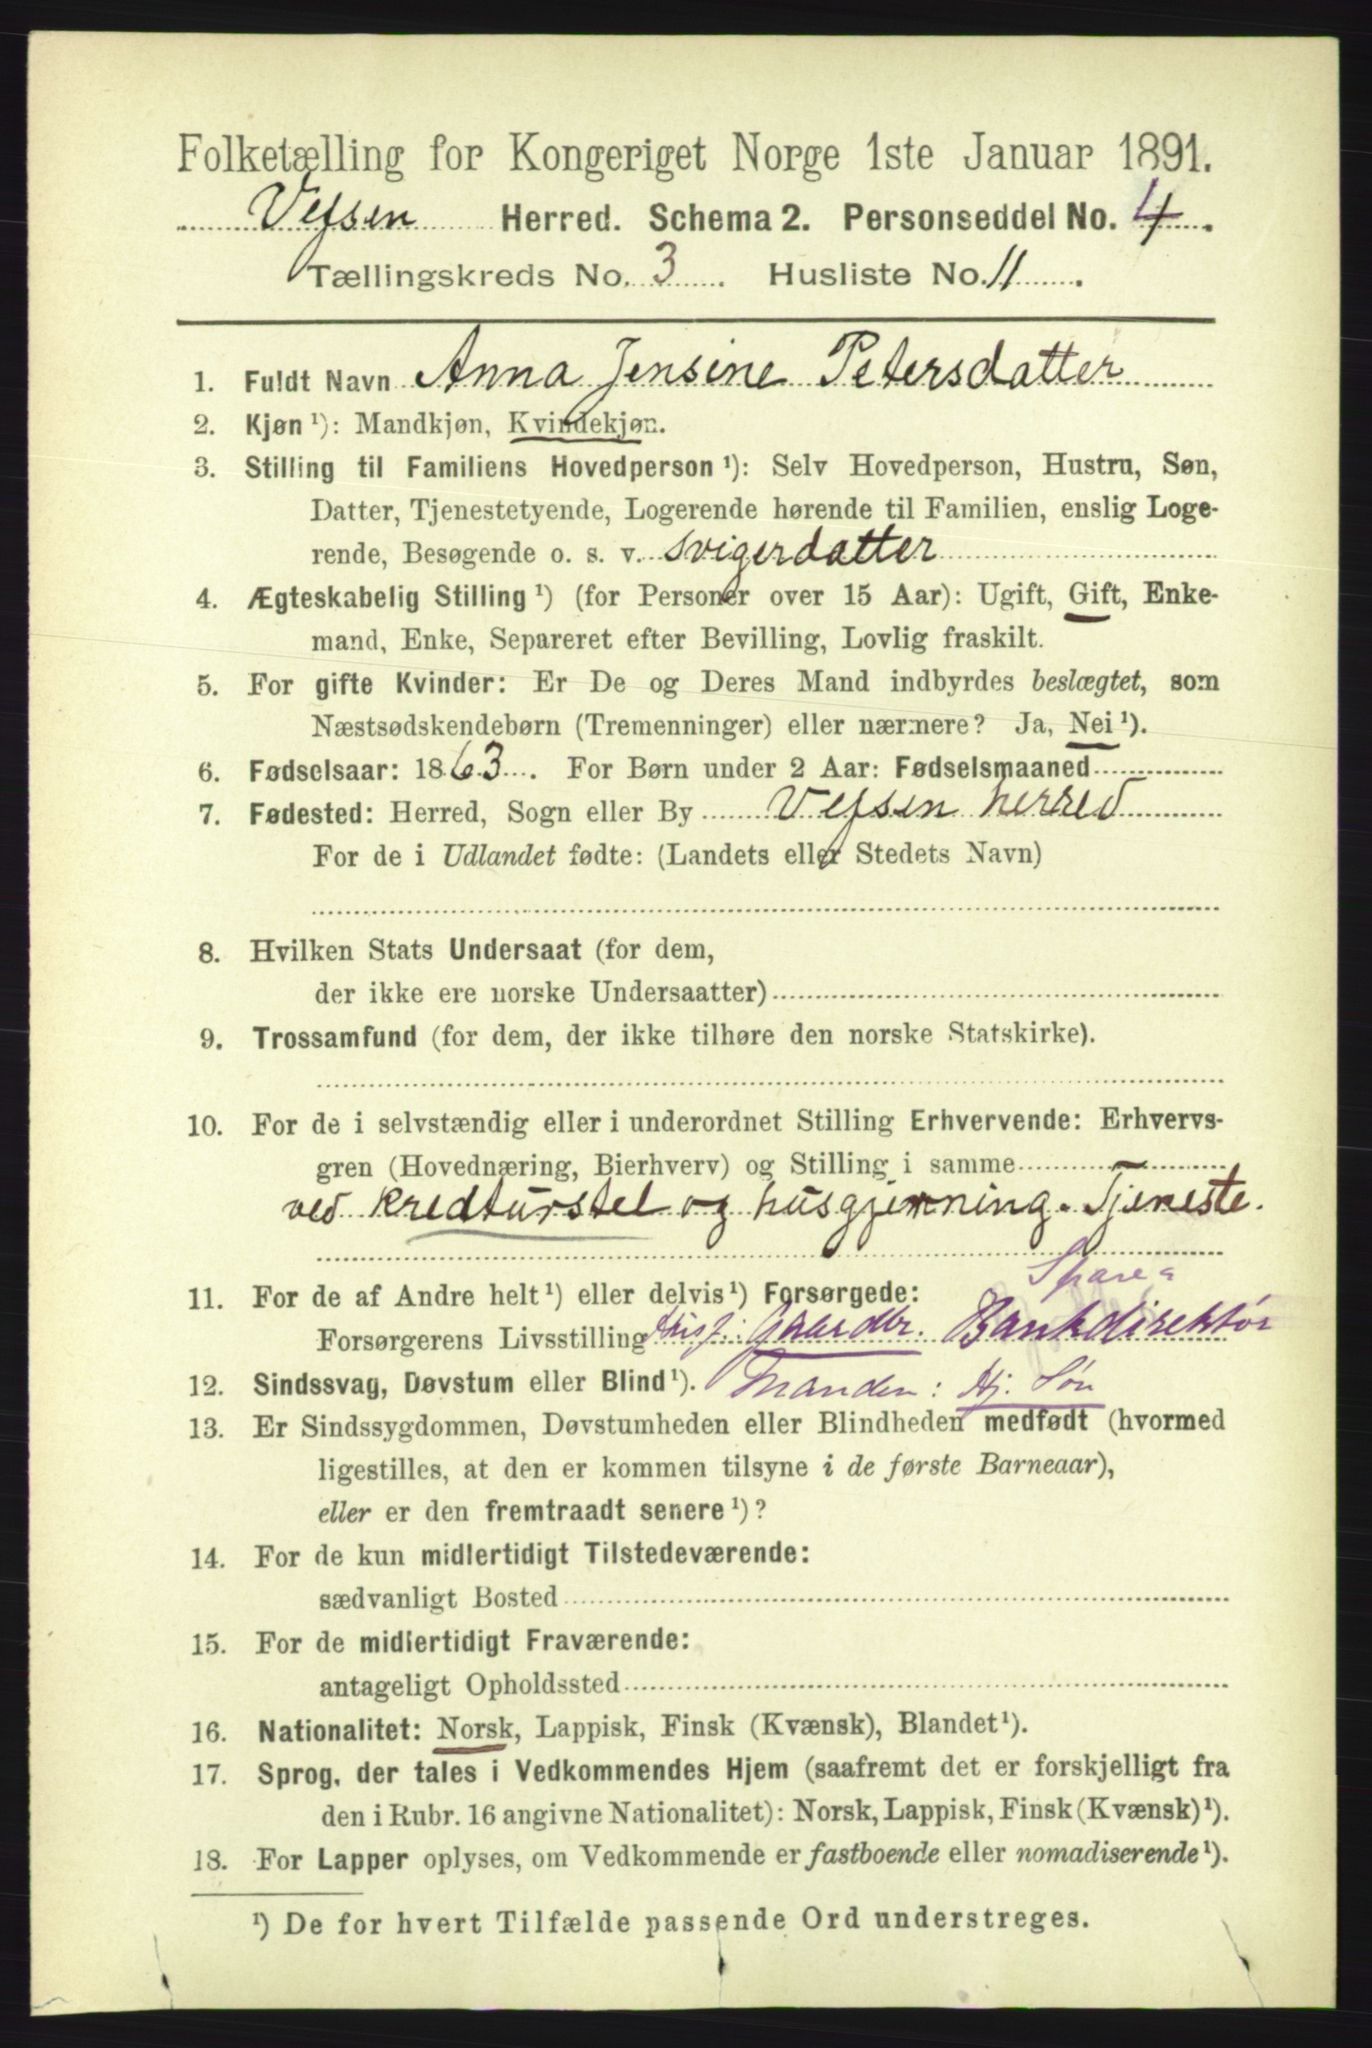 Folketælling for Kongeriget Norge 1ste Januar 1891.
Vefsen Herred. Schema 2. Personseddel No. 4.
Tællingskreds No. 3. Husliste No. 11.
1. Fuldt Navn Anna Jensine Petersdatter
2. Kjøn ¹): Mandkjøn, Kvindekjøn.
3. Stilling til Familiens Hovedperson ¹): Selv Hovedperson, Hustru, Søn,
Datter, Tjenestetyende, Logerende hørende til Familien, enslig Loge-
rende, Besøgende o. s. v. svigerdatter
4. Ægteskabelig Stilling ¹) (for Personer over 15 Aar): Ugift, Gift, Enke-
mand, Enke, Separeret efter Bevilling, Lovlig fraskilt.
5. For gifte Kvinder: Er De og Deres Mand indbyrdes beslægtet, som
Næstsødskendebørn (Tremenninger) eller nærmere? Ja, Nei ¹).
6. Fødselsaar: 1863. For Børn under 2 Aar: Fødselsmaaned
7. Fødested: Herred, Sogn eller By Vefsen herred
For de i Udlandet fødte: (Landets eller Stedets Navn)
8. Hvilken Stats Undersaat (for dem,
der ikke ere norske Undersaatter)
9. Trossamfund (for dem, der ikke tilhøre den norske Statskirke).
10. For de i selvstændig eller i underordnet Stilling Erhvervende: Erhvervs-
gren (Hovednæring, Bierhverv) og Stilling i samme
ved kredturstel og husgjerning. Tjeneste.
11. For de af Andre helt ¹) eller delvis ¹) Forsørgede: Spare-
Forsørgerens Livsstilling Gaardbr. Bankdirektør
12. Sindssvag, Døvstum eller Blind ¹). Manden: Hj. Søn
13. Er Sindssygdommen, Døvstumheden eller Blindheden medfødt (hvormed
ligestilles, at den er kommen tilsyne i de første Barneaar),
eller er den fremtraadt senere ¹)?
14. For de kun midlertidigt Tilstedeværende:
sædvanligt Bosted
15. For de midlertidigt Fraværende:
antageligt Opholdssted
16. Nationalitet: Norsk, Lappisk, Finsk (Kvænsk), Blandet ¹).
17. Sprog, der tales i Vedkommendes Hjem (saafremt det er forskjelligt fra
den i Rubr. 16 angivne Nationalitet): Norsk, Lappisk, Finsk (Kvænsk) ¹).
18. For Lapper oplyses, om Vedkommende er fastboende eller nomadiserende ¹).
¹) De for hvert Tilfælde passende Ord understreges.